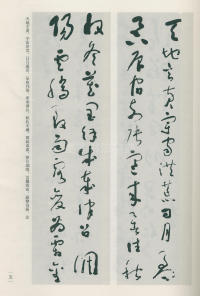 天地玄黃宇宙洪荒日月盈
昃辰宿列張寒來暑往秋
收冬藏閏餘成歲律呂調
陽雲騰致雨露結為霜金
天地玄黃，宇宙洪荒。日月盈昃，辰宿列張。寒來暑往，秋收冬藏。閏餘成歲，律呂調陽。雲騰致雨，露結爲霜。金